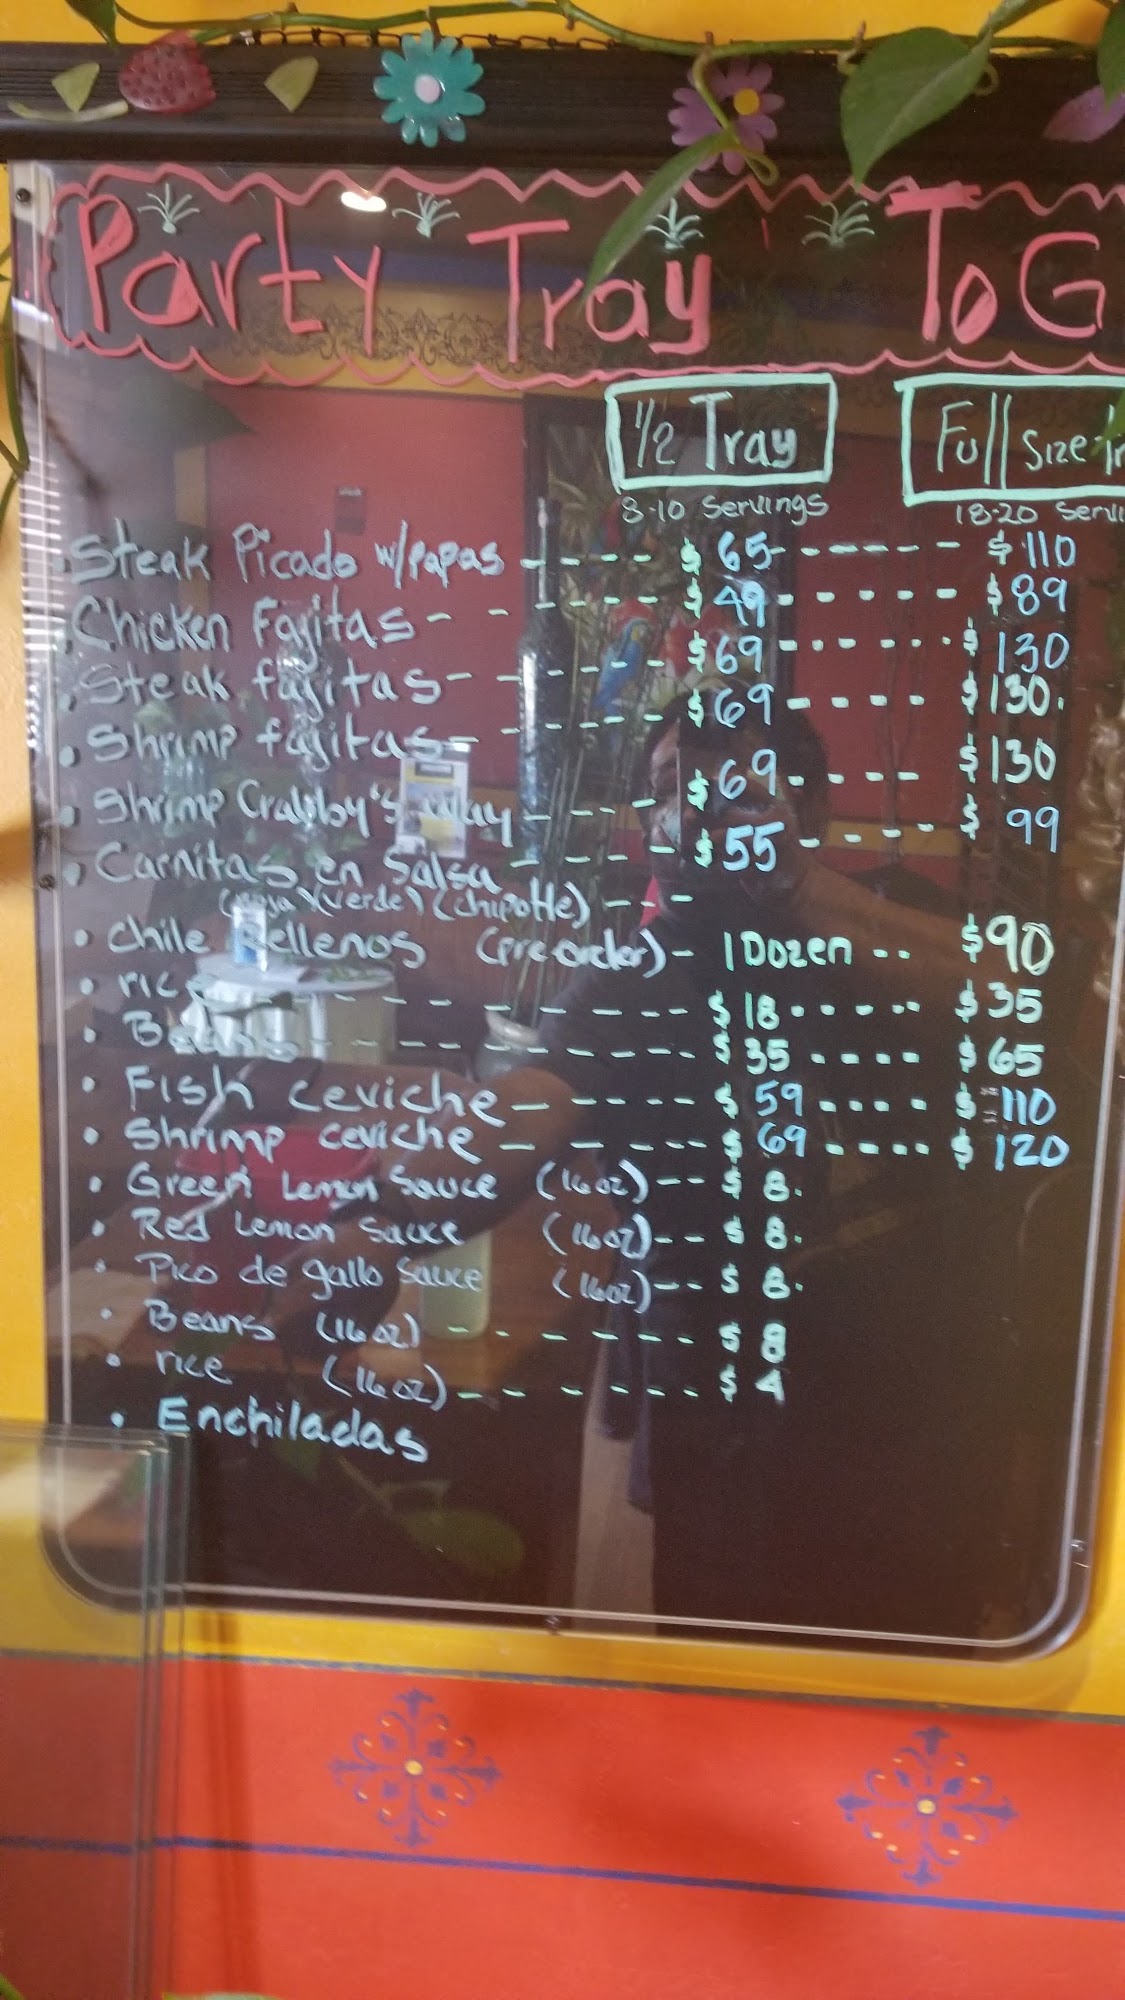 Party Tray To G
1/2 Tray Full Size Tr
8-10 Servings 18-20 Servi
• Steak Picado w/papas - - - - $ 65 - - - - - - $ 110
• Chicken Fajitas - - - - - - $ 49 - - - - - - $ 89
• Steak fajitas - - - - - - $ 69 - - - - - - $ 130
• Shrimp fajitas - - - - - - $ 69 - - - - - $ 130.
• Shrimp Crabby's Way - - - - $ 69 - - - - $ 130
• Carnitas en Salsa - - - - - $ 55 - - - - $ 99
(roja) (verde) (chipotle) - - -
• Chile Rellenos (pre-order) - 1 Dozen - - $ 90
• rice - - - - - - - - - $ 18 - - - - - $ 35
• Beans - - - - - - - - - $ 35 - - - - $ 65
• Fish ceviche - - - - - - $ 59 - - - - - $ 110
• Shrimp ceviche - - - - - $ 69 - - - - - $ 120
• Green Lemon Sauce (16oz) - - $ 8.
• Red Lemon Sauce (16oz) - - $ 8.
• Pico de gallo Sauce (16oz) - - $ 8.
• Beans (16oz) - - - - - - $ 8
• rice (16oz) - - - - - - $ 4
• Enchiladas